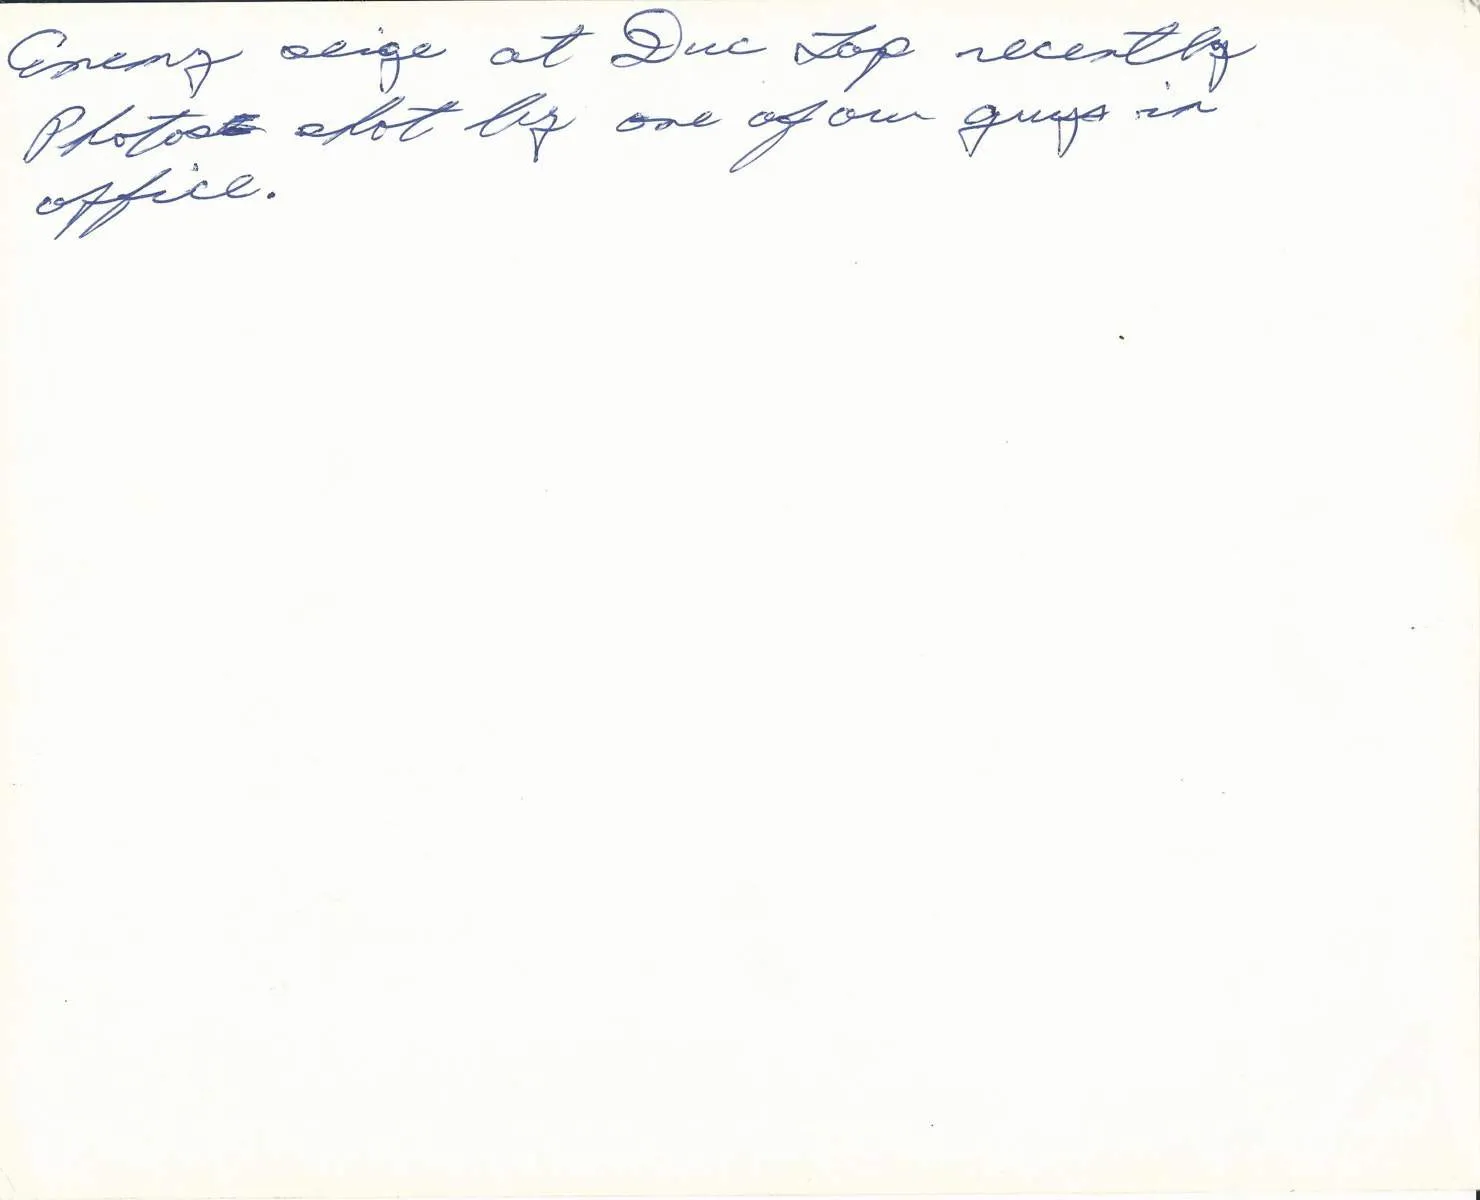 Enemy seige at Duc Lap recently
Photos shot by one of our guys in
office.